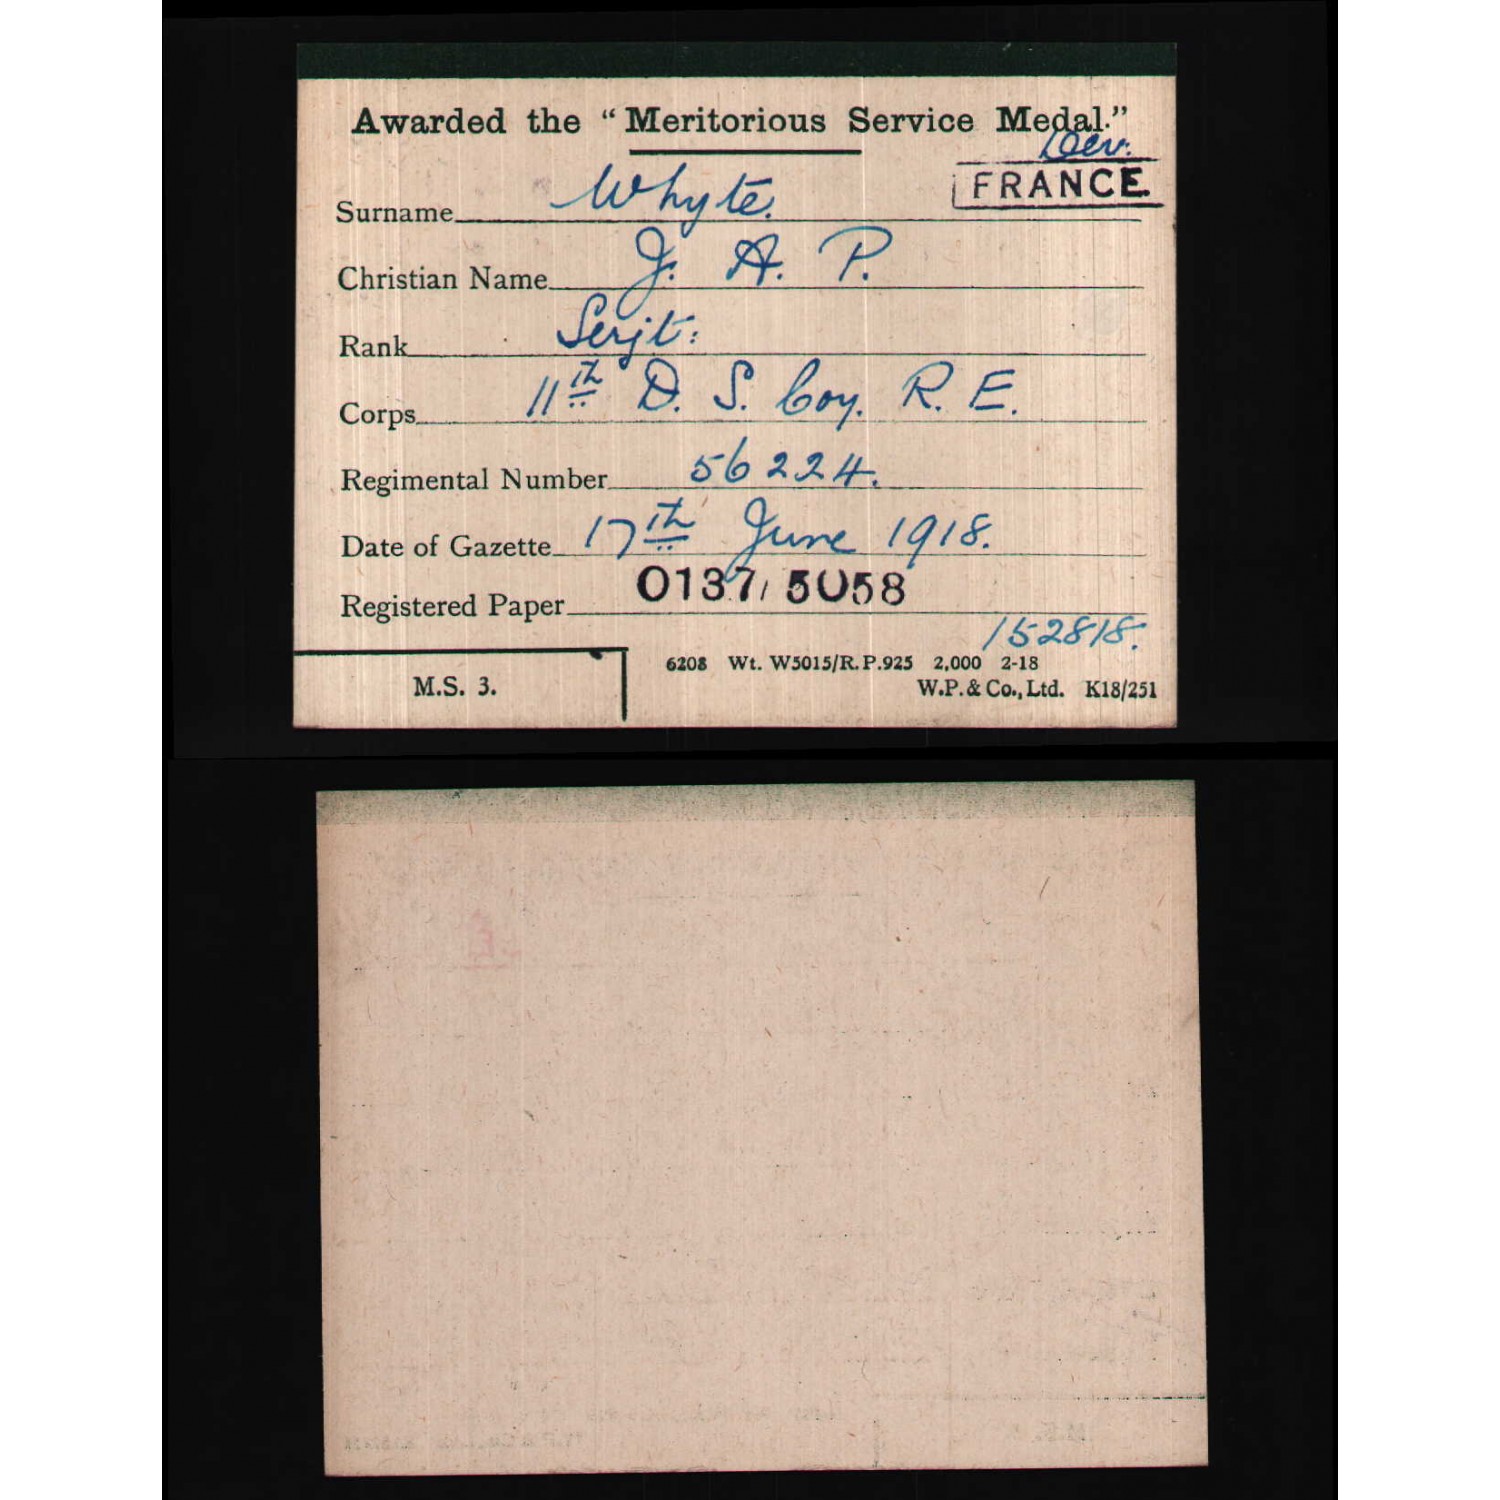 Awarded the "Meritorious Service Medal."
FRANCE
Surname Whyte.
Christian Name J. A. P.
Rank Serjt:
Corps 11th D. S. Coy. R. E.
Regimental Number 56224.
Date of Gazette 17th June 1918.
Registered Paper 0137/5058
152818.
M.S. 3.
6208 Wt. W5015/R.P.925 2,000 2-18
W.P.& Co., Ltd. K18/251